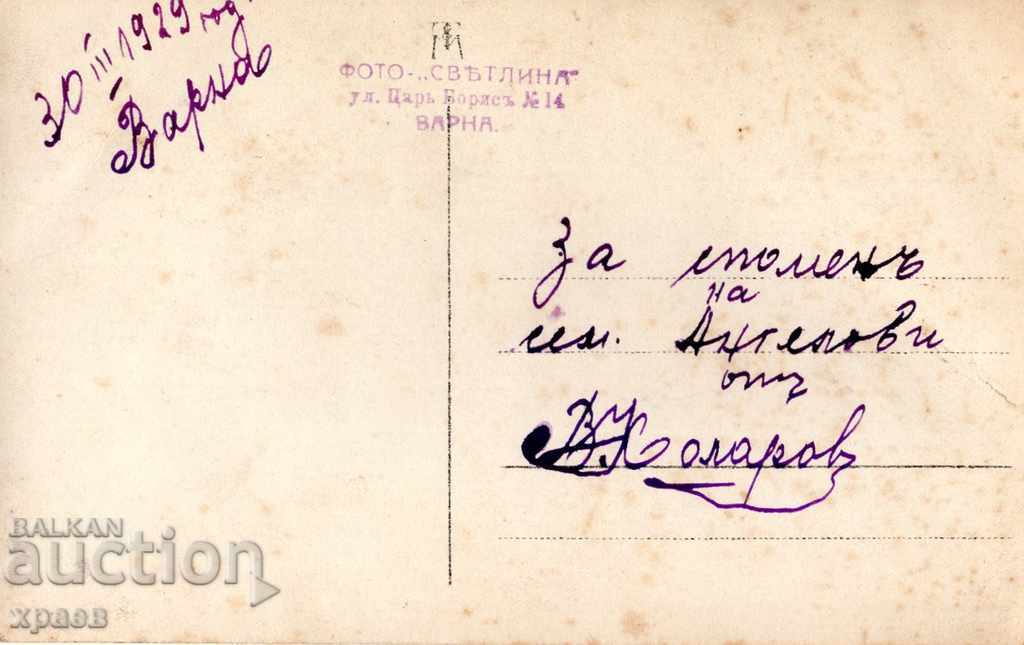 30 III 1929 год.
Варна
ФОТО-„СВѢТЛИНА"
ул. Царь Борисъ № 14
ВАРНА.
За споменъ
на
сем. Ангелови
отъ
BALKAN
auction
храев